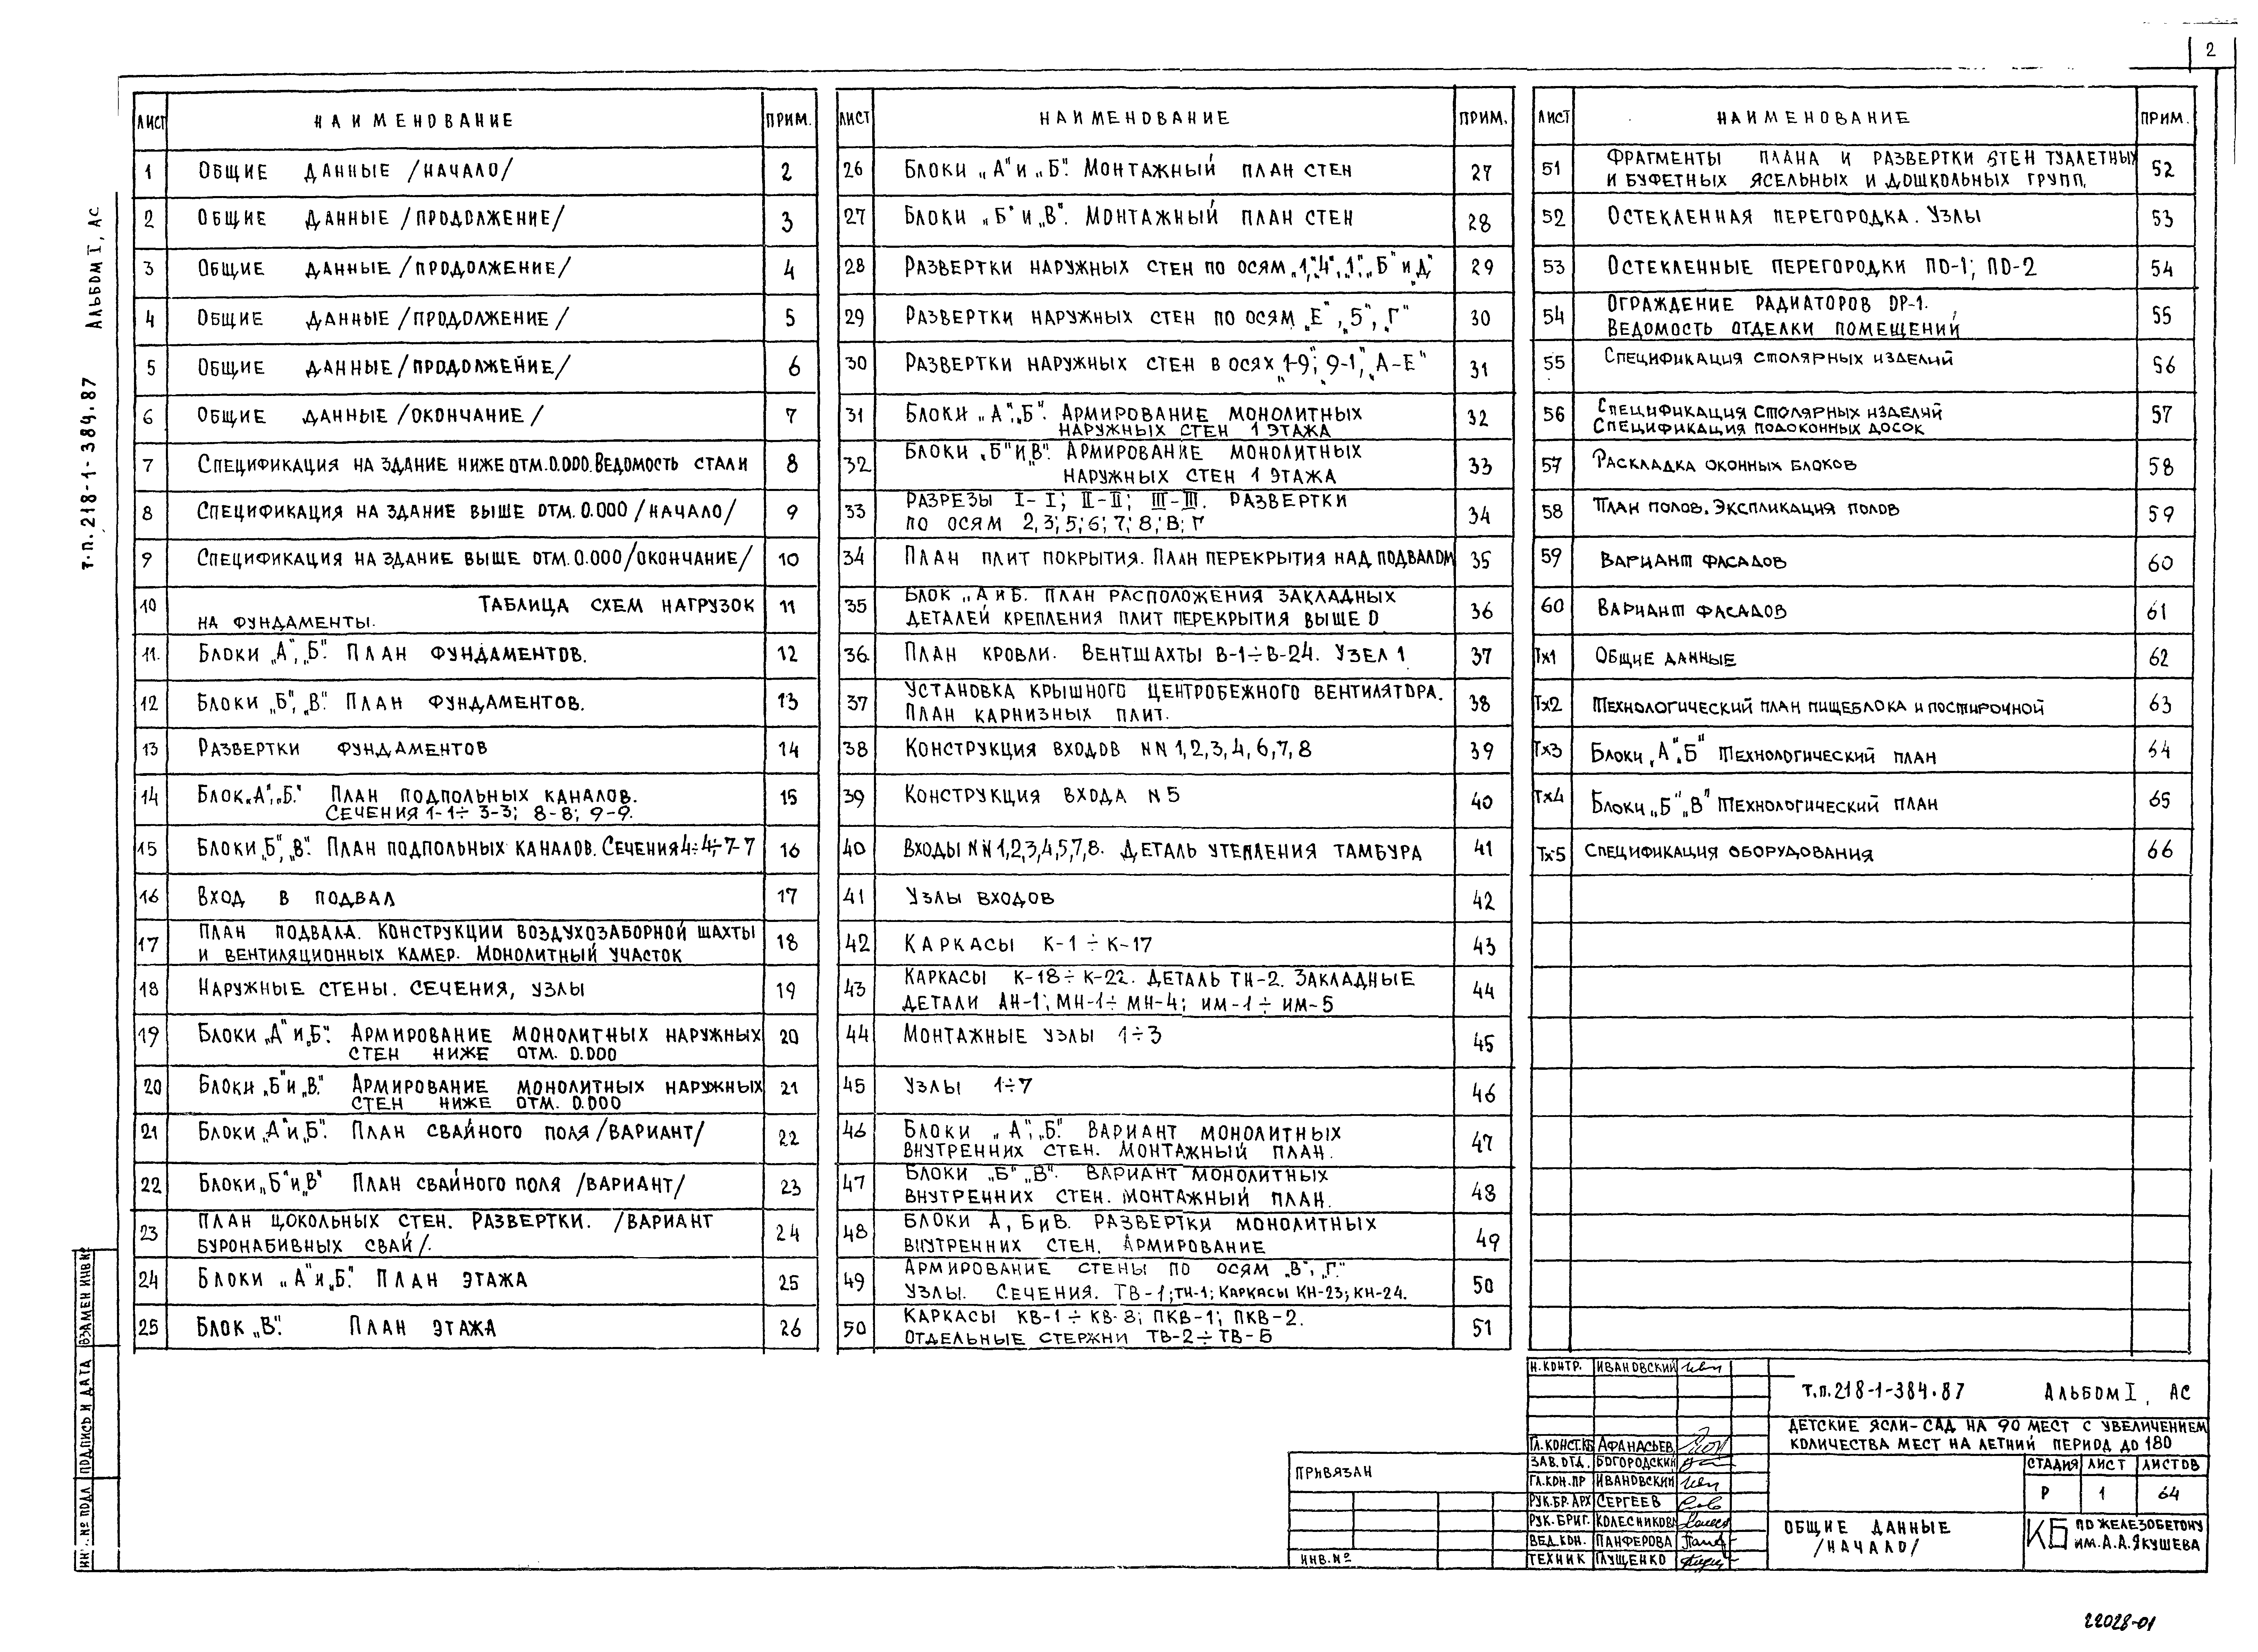 2
Т.П. 218-1-384.87 АЛЬБОМ I, АС
ЛИСТ НАИМЕНОВАНИЕ ПРИМ.
1 ОБЩИЕ ДАННЫЕ /НАЧАЛО/ 2
2 ОБЩИЕ ДАННЫЕ /ПРОДОЛЖЕНИЕ/ 3
3 ОБЩИЕ ДАННЫЕ /ПРОДОЛЖЕНИЕ/ 4
4 ОБЩИЕ ДАННЫЕ /ПРОДОЛЖЕНИЕ/ 5
5 ОБЩИЕ ДАННЫЕ /ПРОДОЛЖЕНИЕ/ 6
6 ОБЩИЕ ДАННЫЕ /ОКОНЧАНИЕ/ 7
7 СПЕЦИФИКАЦИЯ НА ЗДАНИЕ НИЖЕ ОТМ. 0.000. ВЕДОМОСТЬ СТАЛИ 8
8 СПЕЦИФИКАЦИЯ НА ЗДАНИЕ ВЫШЕ ОТМ. 0.000 /НАЧАЛО/ 9
9 СПЕЦИФИКАЦИЯ НА ЗДАНИЕ ВЫШЕ ОТМ. 0.000 /ОКОНЧАНИЕ/ 10
10 ТАБЛИЦА СХЕМ НАГРУЗОК 11
НА ФУНДАМЕНТЫ.
11. БЛОКИ „А", „Б". ПЛАН ФУНДАМЕНТОВ. 12
12 БЛОКИ „Б", „В". ПЛАН ФУНДАМЕНТОВ. 13
13 РАЗВЕРТКИ ФУНДАМЕНТОВ 14
14 БЛОК „А", „Б." ПЛАН ПОДПОЛЬНЫХ КАНАЛОВ. 15
СЕЧЕНИЯ 1-1÷3-3; 8-8; 9-9.
15 БЛОКИ „Б", „В". ПЛАН ПОДПОЛЬНЫХ КАНАЛОВ. СЕЧЕНИЯ 4-4÷7-7 16
16 ВХОД В ПОДВАЛ 17
17 ПЛАН ПОДВАЛА. КОНСТРУКЦИИ ВОЗДУХОЗАБОРНОЙ ШАХТЫ 18
И ВЕНТИЛЯЦИОННЫХ КАМЕР. МОНОЛИТНЫЙ УЧАСТОК
18 НАРУЖНЫЕ СТЕНЫ. СЕЧЕНИЯ, УЗЛЫ 19
19 БЛОКИ „А" и „Б". АРМИРОВАНИЕ МОНОЛИТНЫХ НАРУЖНЫХ 20
СТЕН НИЖЕ ОТМ. 0.000
20 БЛОКИ „Б" и „В." АРМИРОВАНИЕ МОНОЛИТНЫХ НАРУЖНЫХ 21
СТЕН НИЖЕ ОТМ. 0.000
21 БЛОКИ „А" и „Б". ПЛАН СВАЙНОГО ПОЛЯ /ВАРИАНТ/ 22
22 БЛОКИ „Б" и „В" ПЛАН СВАЙНОГО ПОЛЯ /ВАРИАНТ/ 23
23 ПЛАН ЦОКОЛЬНЫХ СТЕН. РАЗВЕРТКИ. /ВАРИАНТ 24
БУРОНАБИВНЫХ СВАЙ/.
24 БЛОКИ „А" и „Б". ПЛАН ЭТАЖА 25
25 БЛОК „В". ПЛАН ЭТАЖА 26
ЛИСТ НАИМЕНОВАНИЕ ПРИМ.
26 БЛОКИ „А" и „Б". МОНТАЖНЫЙ ПЛАН СТЕН 27
27 БЛОКИ „Б" и „В". МОНТАЖНЫЙ ПЛАН СТЕН 28
28 РАЗВЕРТКИ НАРУЖНЫХ СТЕН ПО ОСЯМ „1", „4", „1", „Б" и „Д" 29
29 РАЗВЕРТКИ НАРУЖНЫХ СТЕН ПО ОСЯМ „Е", „5", „Г" 30
30 РАЗВЕРТКИ НАРУЖНЫХ СТЕН В ОСЯХ „1-9"; „9-1", „А-Е" 31
31 БЛОКИ „А", „Б". АРМИРОВАНИЕ МОНОЛИТНЫХ 32
НАРУЖНЫХ СТЕН 1 ЭТАЖА
32 БЛОКИ „Б" и „В". АРМИРОВАНИЕ МОНОЛИТНЫХ 33
НАРУЖНЫХ СТЕН 1 ЭТАЖА
33 РАЗРЕЗЫ I-I; II-II; III-III. РАЗВЕРТКИ 34
ПО ОСЯМ 2,3;5;6;7;8;В;Г
34 ПЛАН ПЛИТ ПОКРЫТИЯ. ПЛАН ПЕРЕКРЫТИЯ НАД ПОДВАЛОМ 35
35 БЛОК „А и Б. ПЛАН РАСПОЛОЖЕНИЯ ЗАКЛАДНЫХ 36
ДЕТАЛЕЙ КРЕПЛЕНИЯ ПЛИТ ПЕРЕКРЫТИЯ ВЫШЕ 0
36 ПЛАН КРОВЛИ. ВЕНТШАХТЫ В-1÷В-24. УЗЕЛ 1 37
37 УСТАНОВКА КРЫШНОГО ЦЕНТРОБЕЖНОГО ВЕНТИЛЯТОРА. 38
ПЛАН КАРНИЗНЫХ ПЛИТ.
38 КОНСТРУКЦИЯ ВХОДОВ NN 1,2,3,4,6,7,8 39
39 КОНСТРУКЦИЯ ВХОДА N 5 40
40 ВХОДЫ NN 1,2,3,4,5,7,8. ДЕТАЛЬ УТЕПЛЕНИЯ ТАМБУРА 41
41 УЗЛЫ ВХОДОВ 42
42 КАРКАСЫ К-1÷К-17 43
43 КАРКАСЫ К-18÷К-22. ДЕТАЛЬ ТН-2. ЗАКЛАДНЫЕ 44
ДЕТАЛИ АН-1; МН-1÷МН-4; ИМ-1÷ИМ-5
44 МОНТАЖНЫЕ УЗЛЫ 1÷3 45
45 УЗЛЫ 1÷7 46
46 БЛОКИ „А", „Б". ВАРИАНТ МОНОЛИТНЫХ 47
ВНУТРЕННИХ СТЕН. МОНТАЖНЫЙ ПЛАН.
47 БЛОКИ „Б" „В". ВАРИАНТ МОНОЛИТНЫХ 48
ВНУТРЕННИХ СТЕН. МОНТАЖНЫЙ ПЛАН.
48 БЛОКИ А, Б и В. РАЗВЕРТКИ МОНОЛИТНЫХ 49
ВНУТРЕННИХ СТЕН. АРМИРОВАНИЕ
49 АРМИРОВАНИЕ СТЕНЫ ПО ОСЯМ „В", „Г." 50
УЗЛЫ. СЕЧЕНИЯ. ТВ-1; ТН-1; КАРКАСЫ КН-23; КН-24.
50 КАРКАСЫ КВ-1÷КВ-8; ПКВ-1; ПКВ-2. 51
ОТДЕЛЬНЫЕ СТЕРЖНИ ТВ-2÷ТВ-Б
ЛИСТ НАИМЕНОВАНИЕ ПРИМ.
51 ФРАГМЕНТЫ ПЛАНА И РАЗВЕРТКИ СТЕН ТУАЛЕТНЫХ 52
И БУФЕТНЫХ ЯСЕЛЬНЫХ И ДОШКОЛЬНЫХ ГРУПП.
52 ОСТЕКЛЕННАЯ ПЕРЕГОРОДКА. УЗЛЫ 53
53 ОСТЕКЛЕННЫЕ ПЕРЕГОРОДКИ ПО-1; ПО-2 54
54 ОГРАЖДЕНИЕ РАДИАТОРОВ ОР-1. 55
ВЕДОМОСТЬ ОТДЕЛКИ ПОМЕЩЕНИЙ
55 СПЕЦИФИКАЦИЯ СТОЛЯРНЫХ ИЗДЕЛИЙ 56
56 СПЕЦИФИКАЦИЯ СТОЛЯРНЫХ ИЗДЕЛИЙ 57
СПЕЦИФИКАЦИЯ ПОДОКОННЫХ ДОСОК
57 РАСКЛАДКА ОКОННЫХ БЛОКОВ 58
58 ПЛАН ПОЛОВ. ЭКСПЛИКАЦИЯ ПОЛОВ 59
59 ВАРИАНТ ФАСАДОВ 60
60 ВАРИАНТ ФАСАДОВ 61
Тх1 ОБЩИЕ ДАННЫЕ 62
Тх2 ТЕХНОЛОГИЧЕСКИЙ ПЛАН ПИЩЕБЛОКА И ПОСТИРОЧНОЙ 63
Тх3 БЛОКИ „А" „Б" ТЕХНОЛОГИЧЕСКИЙ ПЛАН 64
Тх4 БЛОКИ „Б" „В" ТЕХНОЛОГИЧЕСКИЙ ПЛАН 65
Тх5 СПЕЦИФИКАЦИЯ ОБОРУДОВАНИЯ 66
ИНВ. № ПОДЛ ПОДПИСЬ И ДАТА ВЗАМЕН ИНВ №
ПРИВЯЗАН
ИНВ. №
Н. КОНТР. ИВАНОВСКИЙ
ГЛ. КОНСТ. КБ АФАНАСЬЕВ
ЗАВ. ОТД. БОГОРОДСКИЙ
ГЛ. КОН. ПР ИВАНОВСКИЙ
РУК. БР. АРХ СЕРГЕЕВ
РУК. БРИГ. КОЛЕСНИКОВА
ВЕД. КОН. ПАНФЕРОВА
ТЕХНИК ГЛУЩЕНКО
Т.П. 218-1-384.87 АЛЬБОМ I, АС
ДЕТСКИЕ ЯСЛИ-САД НА 90 МЕСТ С УВЕЛИЧЕНИЕМ
КОЛИЧЕСТВА МЕСТ НА ЛЕТНИЙ ПЕРИОД ДО 180
СТАДИЯ ЛИСТ ЛИСТОВ
Р 1 64
ОБЩИЕ ДАННЫЕ
/НАЧАЛО/
КБ ПО ЖЕЛЕЗОБЕТОНУ
ИМ. А.А. ЯКУШЕВА
22028-01